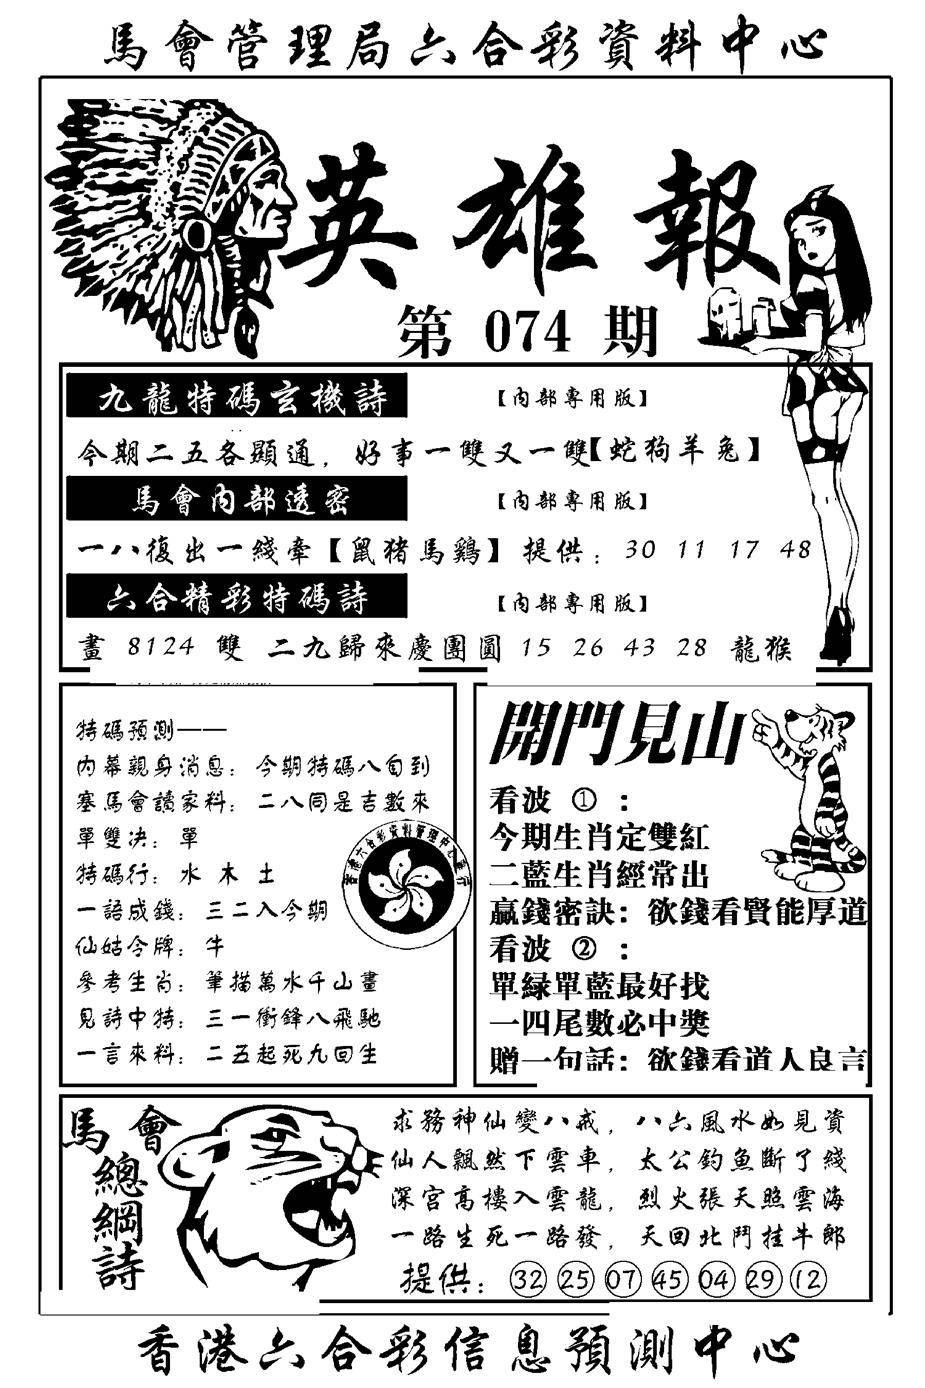 馬會管理局六合彩資料中心
英雄報
第 074 期
九龍特碼玄機詩
【內部專用版】
今期二五各顯通，好事一雙又一雙【蛇狗羊兔】
馬會內部透密
【內部專用版】
一八復出一綫牽【鼠猪馬鷄】提供：30 11 17 48
六合精彩特碼詩
【內部專用版】
畫 8124 雙 二九歸來慶團圓 15 26 43 28 龍猴
特碼預測——
內幕親身消息：今期特碼八自到
塞馬會讀家料：二八同是吉數來
單雙决：單
特碼行：水 木 土
一語成錢：三二入今期
仙姑令牌：牛
參考生肖：筆描萬水千山畫
見詩中特：三一衝鋒八飛馳
一言來料：二五起死九回生
開門見山
看波 ①：
今期生肖定雙紅
二藍生肖經常出
贏錢密訣：欲錢看賢能厚道
看波 ②：
單緑單藍最好找
一四尾數必中獎
贈一句話：欲錢看道人良言
馬會
總綱詩
求務神仙變八戒，八六風水如見資
仙人飄然下雲車，太公釣魚斷了綫
深宮高樓入雲龍，烈火張天照雲海
一路生死一路發，天回北鬥挂牛郎
提供：32 25 07 45 04 29 12
香港六合彩信息預測中心